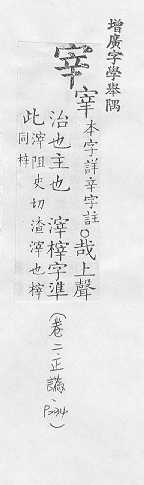 增廣字學舉隅
宰
宰本字詳辛字註○哉上聲
治也主也 滓榟字準
此滓阻史切渣滓也榟
同梓
(卷二.正譌.